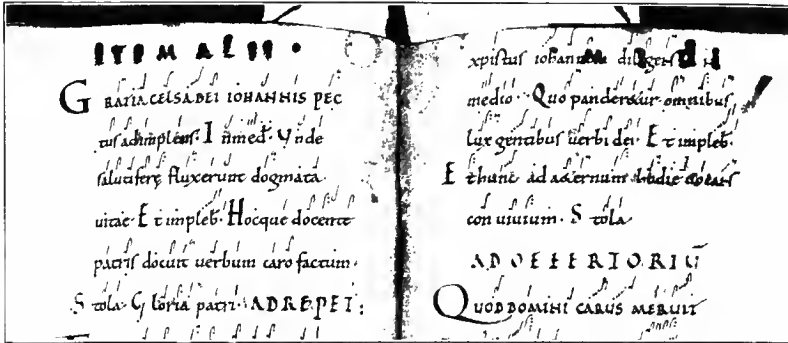 ITEM ALII ·
GRATIA CELSA DEI IOHANNIS PEC
tus adimplens· In med· Vnde
salutiferę fluxerunt dogmata
vitae· Et impleb· Hocque docente
patris docuit verbum caro factum·
Stola· Gloria patri· AD REPET:
xpistus iohannem
medio· Quo panderetur omnibus
lux gentibus uerbi dei· Et impleb·
Et hunc ad aeternum hodie
conuiuium· Stola
AD OFFERTORIU
QUOD DOMINI CARUS MERUIT